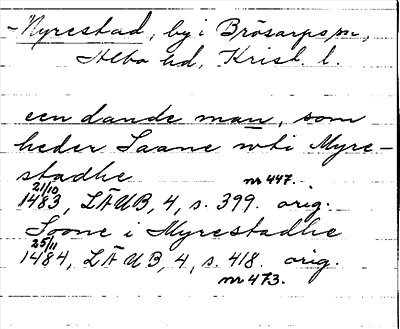 - Nyrestad, by i Brösarps sn,
Albo hd, Krist. l.
een dande man, som
heder Saane wti Myre-
stadhe nr 447.
21/10
1483, LÄUB, 4, s. 399. orig.
Soone i Myrestadhe
25/11
1484, LÄUB, 4, s. 418. orig.
nr 473.